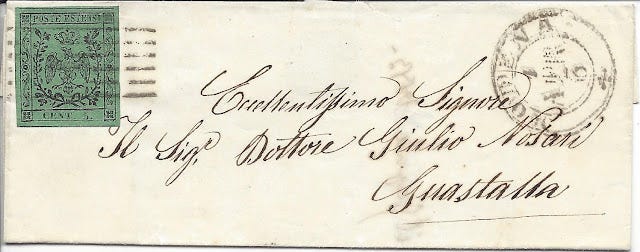 POSTE ESTENSI
CENT. 5.
MODENA
Eccellentissimo Signore
Il Sigr. Dottore Giulio Nosari
Guastalla